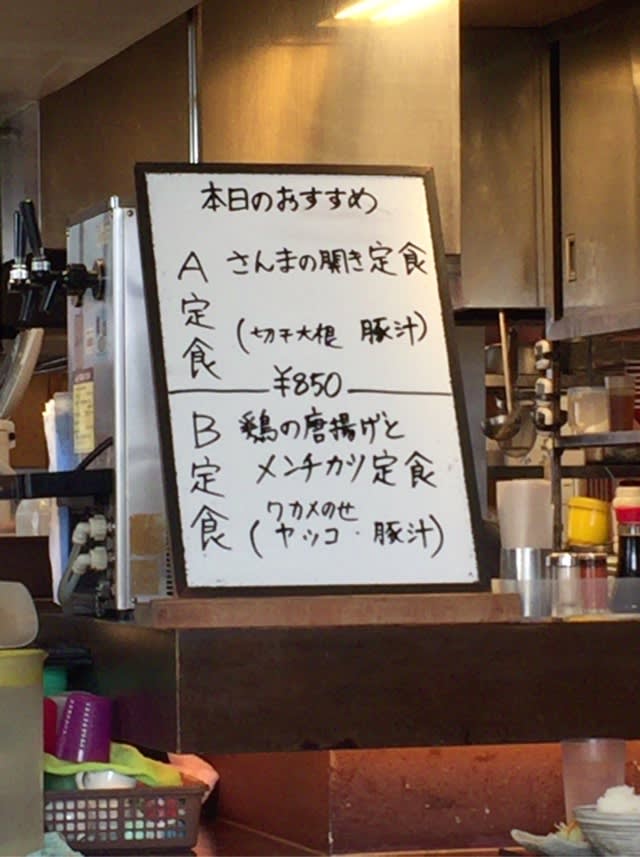 本日のおすすめ
A定食
さんまの開き定食
(切干大根 豚汁)
¥850
B定食
鶏の唐揚げと
メンチカツ定食
ワカメのせ
(ヤッコ・豚汁)